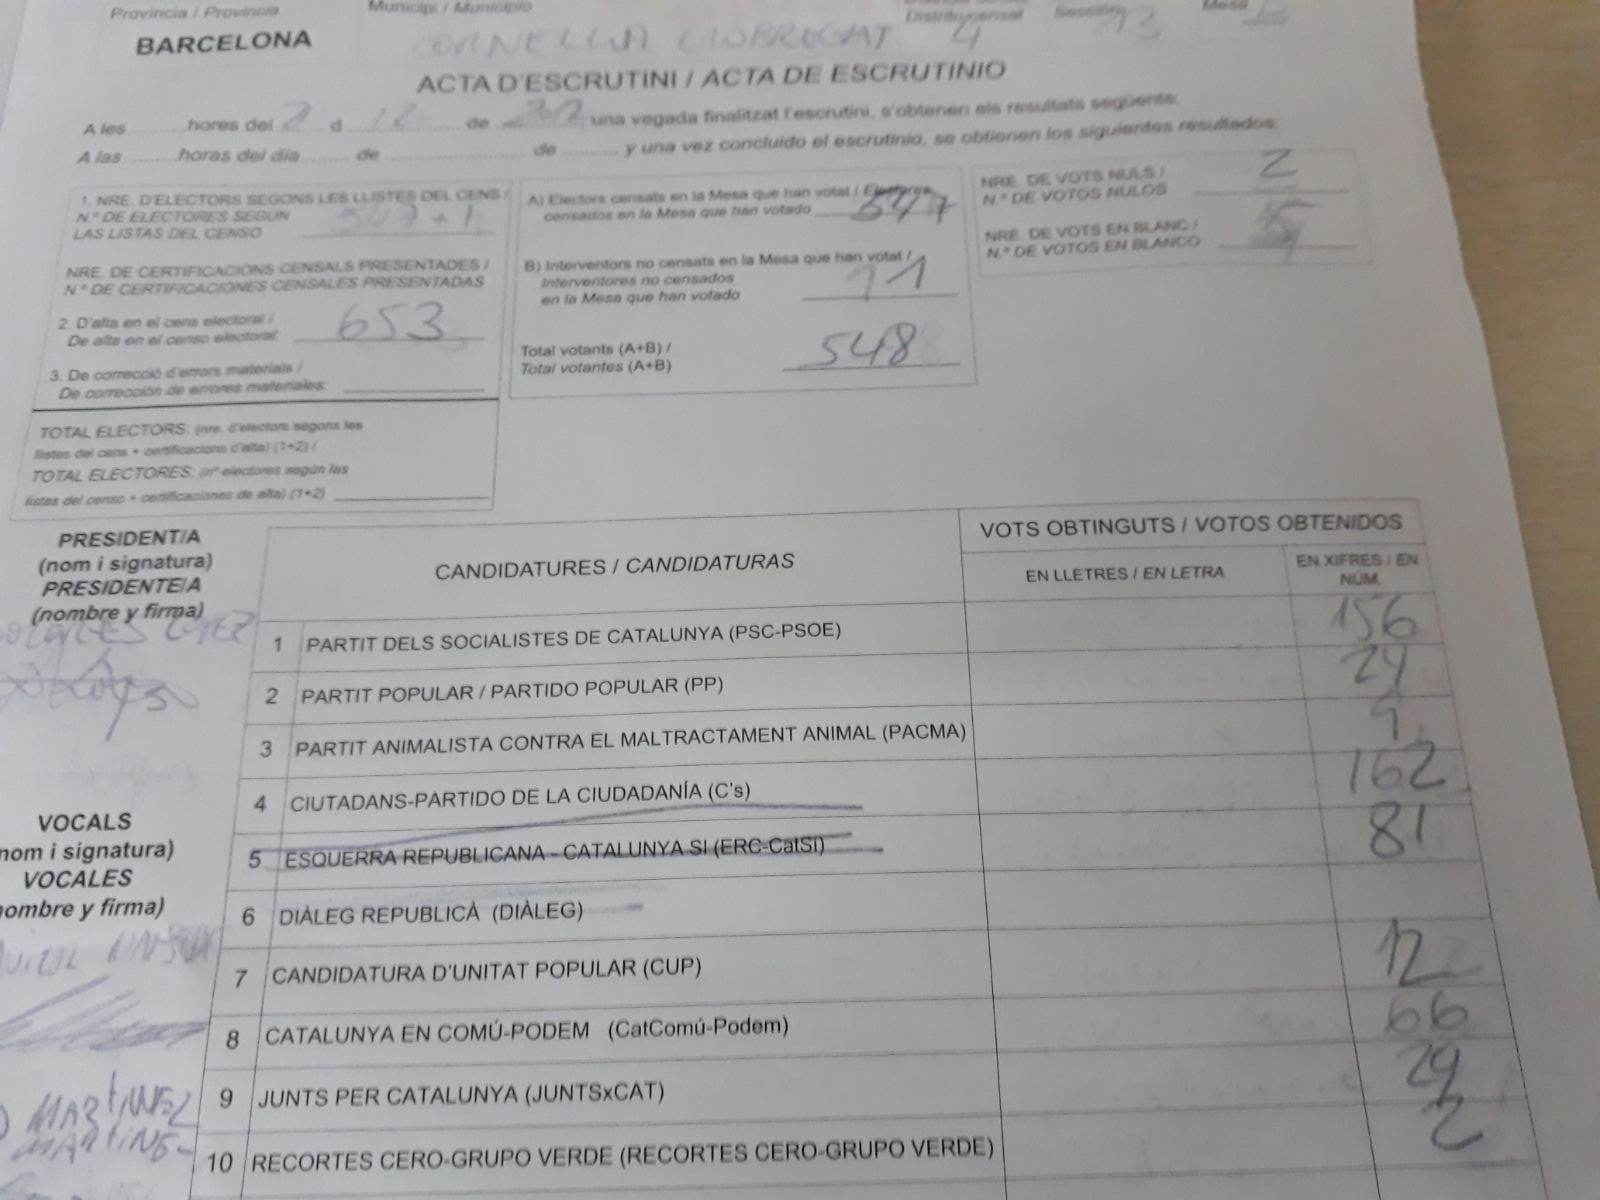 Provincia / Provincia
Municipi / Municipio
Distrito censal
Sección
Mesa
BARCELONA
CORNELLA LLOBREGAT
4
13
ACTA D'ESCRUTINI / ACTA DE ESCRUTINIO
A les .......... hores del d 12 de una vegada finalitzat l'escrutini, s'obtenen els resultats següents:
A las .......... horas del día ........ de .......................... de .......... y una vez concluido el escrutinio, se obtienen los siguientes resultados:
1. NRE. D'ELECTORS SEGONS LES LLISTES DEL CENS /
N.º DE ELECTORES SEGÚN
LAS LISTAS DEL CENSO
547+1
NRE. DE CERTIFICACIONS CENSALS PRESENTADES /
N.º DE CERTIFICACIONES CENSALES PRESENTADAS
2. D'alta en el cens electoral /
De alta en el censo electoral:
653
3. De correcció d'errors materials /
De corrección de errores materiales:
TOTAL ELECTORS: (nre. d'electors segons les
llistes del cens + certificacions d'alta) (1+2) /
TOTAL ELECTORES: (nº electores según las
listas del censo + certificaciones de alta) (1+2)
A) Electors censats en la Mesa que han votat / Electores
censados en la Mesa que han votado
547
B) Interventors no censats en la Mesa que han votat /
Interventores no censados
en la Mesa que han votado
1
Total votants (A+B) /
Total votantes (A+B)
548
NRE. DE VOTS NULS /
N.º DE VOTOS NULOS
2
NRE. DE VOTS EN BLANC /
N.º DE VOTOS EN BLANCO
5
PRESIDENT/A
(nom i signatura)
PRESIDENTE/A
(nombre y firma)
VOCALS
nom i signatura)
VOCALES
ombre y firma)
MARTINEZ
MARTINE
CANDIDATURES / CANDIDATURAS
VOTS OBTINGUTS / VOTOS OBTENIDOS
EN LLETRES / EN LETRA
EN XIFRES / EN
NÚM.
1 PARTIT DELS SOCIALISTES DE CATALUNYA (PSC-PSOE) 156
2 PARTIT POPULAR / PARTIDO POPULAR (PP) 24
3 PARTIT ANIMALISTA CONTRA EL MALTRACTAMENT ANIMAL (PACMA) 9
4 CIUTADANS-PARTIDO DE LA CIUDADANÍA (C's) 162
5 ESQUERRA REPUBLICANA - CATALUNYA SÍ (ERC-CatSí) 81
6 DIÀLEG REPUBLICÀ (DIÀLEG)
7 CANDIDATURA D'UNITAT POPULAR (CUP) 12
8 CATALUNYA EN COMÚ-PODEM (CatComú-Podem) 66
9 JUNTS PER CATALUNYA (JUNTSxCAT) 29
10 RECORTES CERO-GRUPO VERDE (RECORTES CERO-GRUPO VERDE) 2